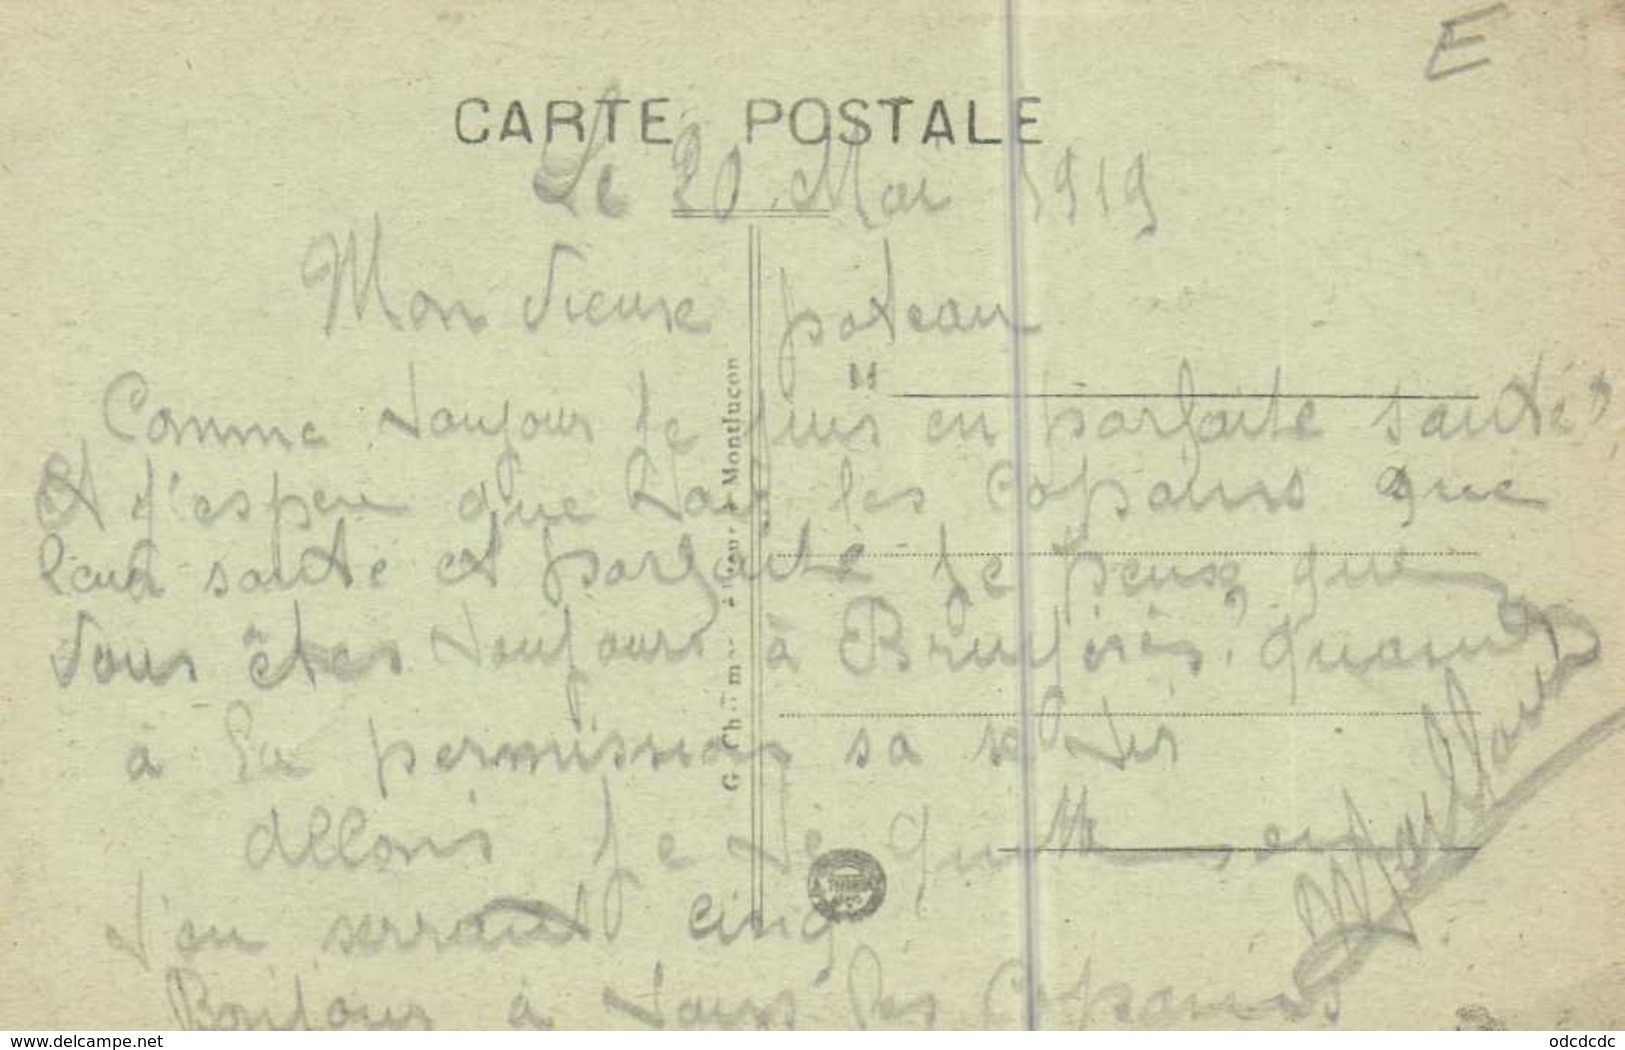 E
CARTE POSTALE
Le 20 Mai 1919
Mon vieux poteau
M
Comme toujour je suis en parfaite santé
et j'esper que tous les copains que
leur sante et parfaite je peux que
vous êtes toujours à quand
à la permission sa
allons je te quitte en
t'en serrant cinq
Bonjour à tous les copains
Montluçon
www.delcampe.net
odcdcdc